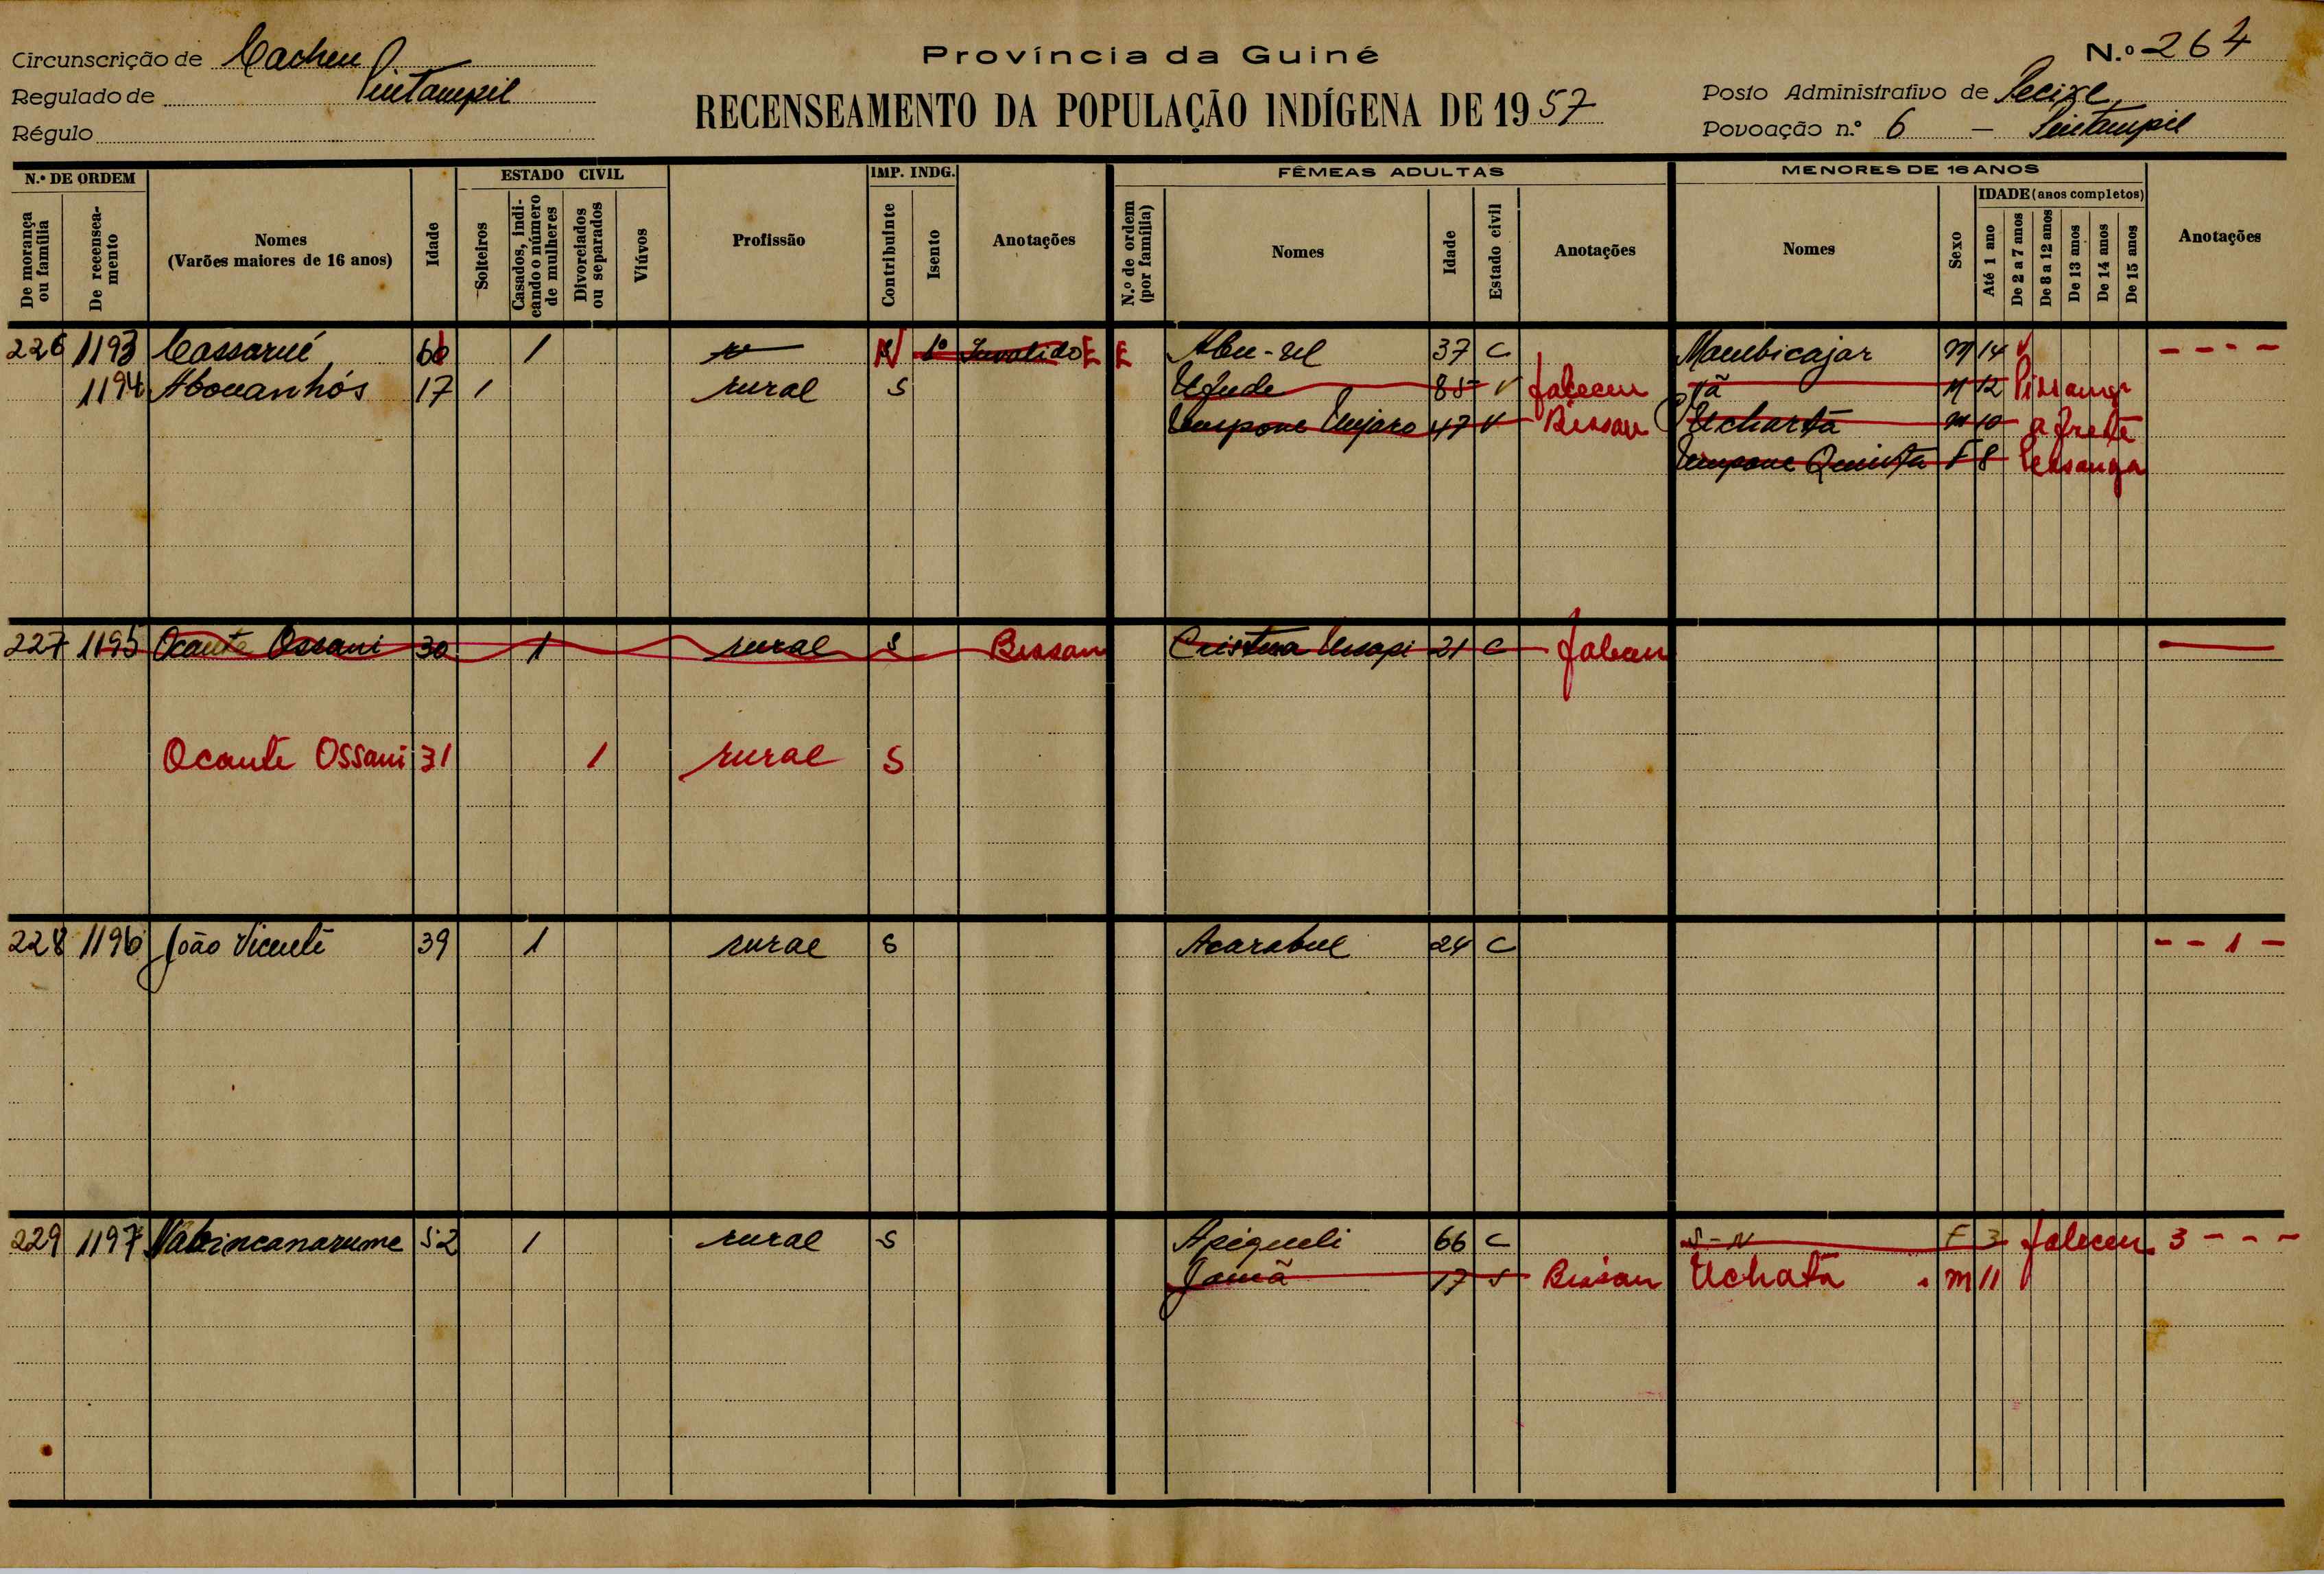 Circunscrição de Cacheu
Província da Guiné
N.º 264
Regulado de Sintampil
RECENSEAMENTO DA POPULAÇÃO INDÍGENA DE 1957
Posto Administrativo de Pecixe
Régulo
Povoação n.º 6 — Sintampil
N.º DE ORDEM
De morança ou família
De recenseamento
Nomes
(Varões maiores de 16 anos)
Idade
ESTADO CIVIL
Solteiros
Casados, indicando o número de mulheres
Divorciados ou separados
Viúvos
Profissão
IMP. INDG.
Contribuinte
Isento
Anotações
FÊMEAS ADULTAS
N.º de ordem (por família)
Nomes
Idade
Estado civil
Anotações
MENORES DE 16 ANOS
Nomes
Sexo
IDADE (anos completos)
Até 1 ano
De 2 a 7 anos
De 8 a 12 anos
De 13 anos
De 14 anos
De 15 anos
Anotações
226 1193 Cassarué 1 N 1º Invalido E E 37 C Mambicajar M 14 - - - -
1194 Abouanhós 17 1 rural S Ufude 85 V faleceu M 12
47 V Bissau Ucharta M 10
F 8
227 1195 Ocante Ossani 30 1 rural S Bissau Cristina 21 C faleceu —
Ocante Ossani 31 1 rural S
228 1196 João Vicente 39 1 rural S Acarabul 24 C - - 1 -
229 1197 Nabincanarume 52 1 rural S Apiqueli 66 C S-N F 3 faleceu 3 - - -
Jamã 17 S Bissau Uchatã M 11